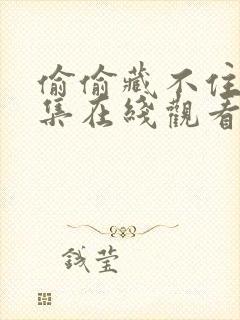 偷偷藏不住
集在綫觀看
钱莹